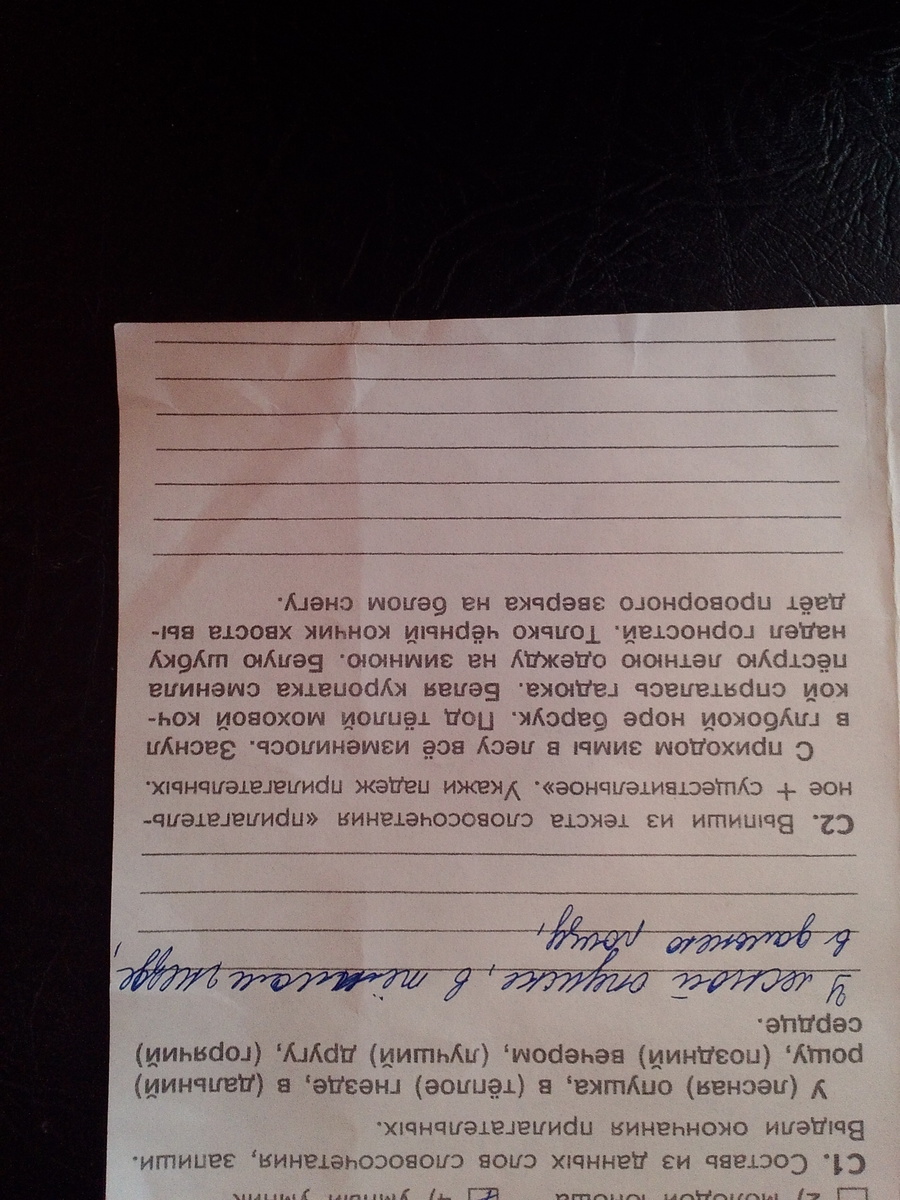 2) молодой юноша 4) умный умник
С1. Составь из данных слов словосочетания, запиши.
Выдели окончания прилагательных.
У (лесная) опушка, в (тёплое) гнезде, в (дальний)
рощу, (поздний) вечером, (лучший) другу, (горячий)
сердце.
У лесной опушке, в тёплом гнезде,
в дальнею рощу,
С2. Выпиши из текста словосочетания «прилагатель-
ное + существительное». Укажи падеж прилагательных.
С приходом зимы в лесу всё изменилось. Заснул
в глубокой норе барсук. Под тёплой моховой коч-
кой спряталась гадюка. Белая куропатка сменила
пёструю летнюю одежду на зимнюю. Белую шубку
надел горностай. Только чёрный кончик хвоста вы-
даёт проворного зверька на белом снегу.